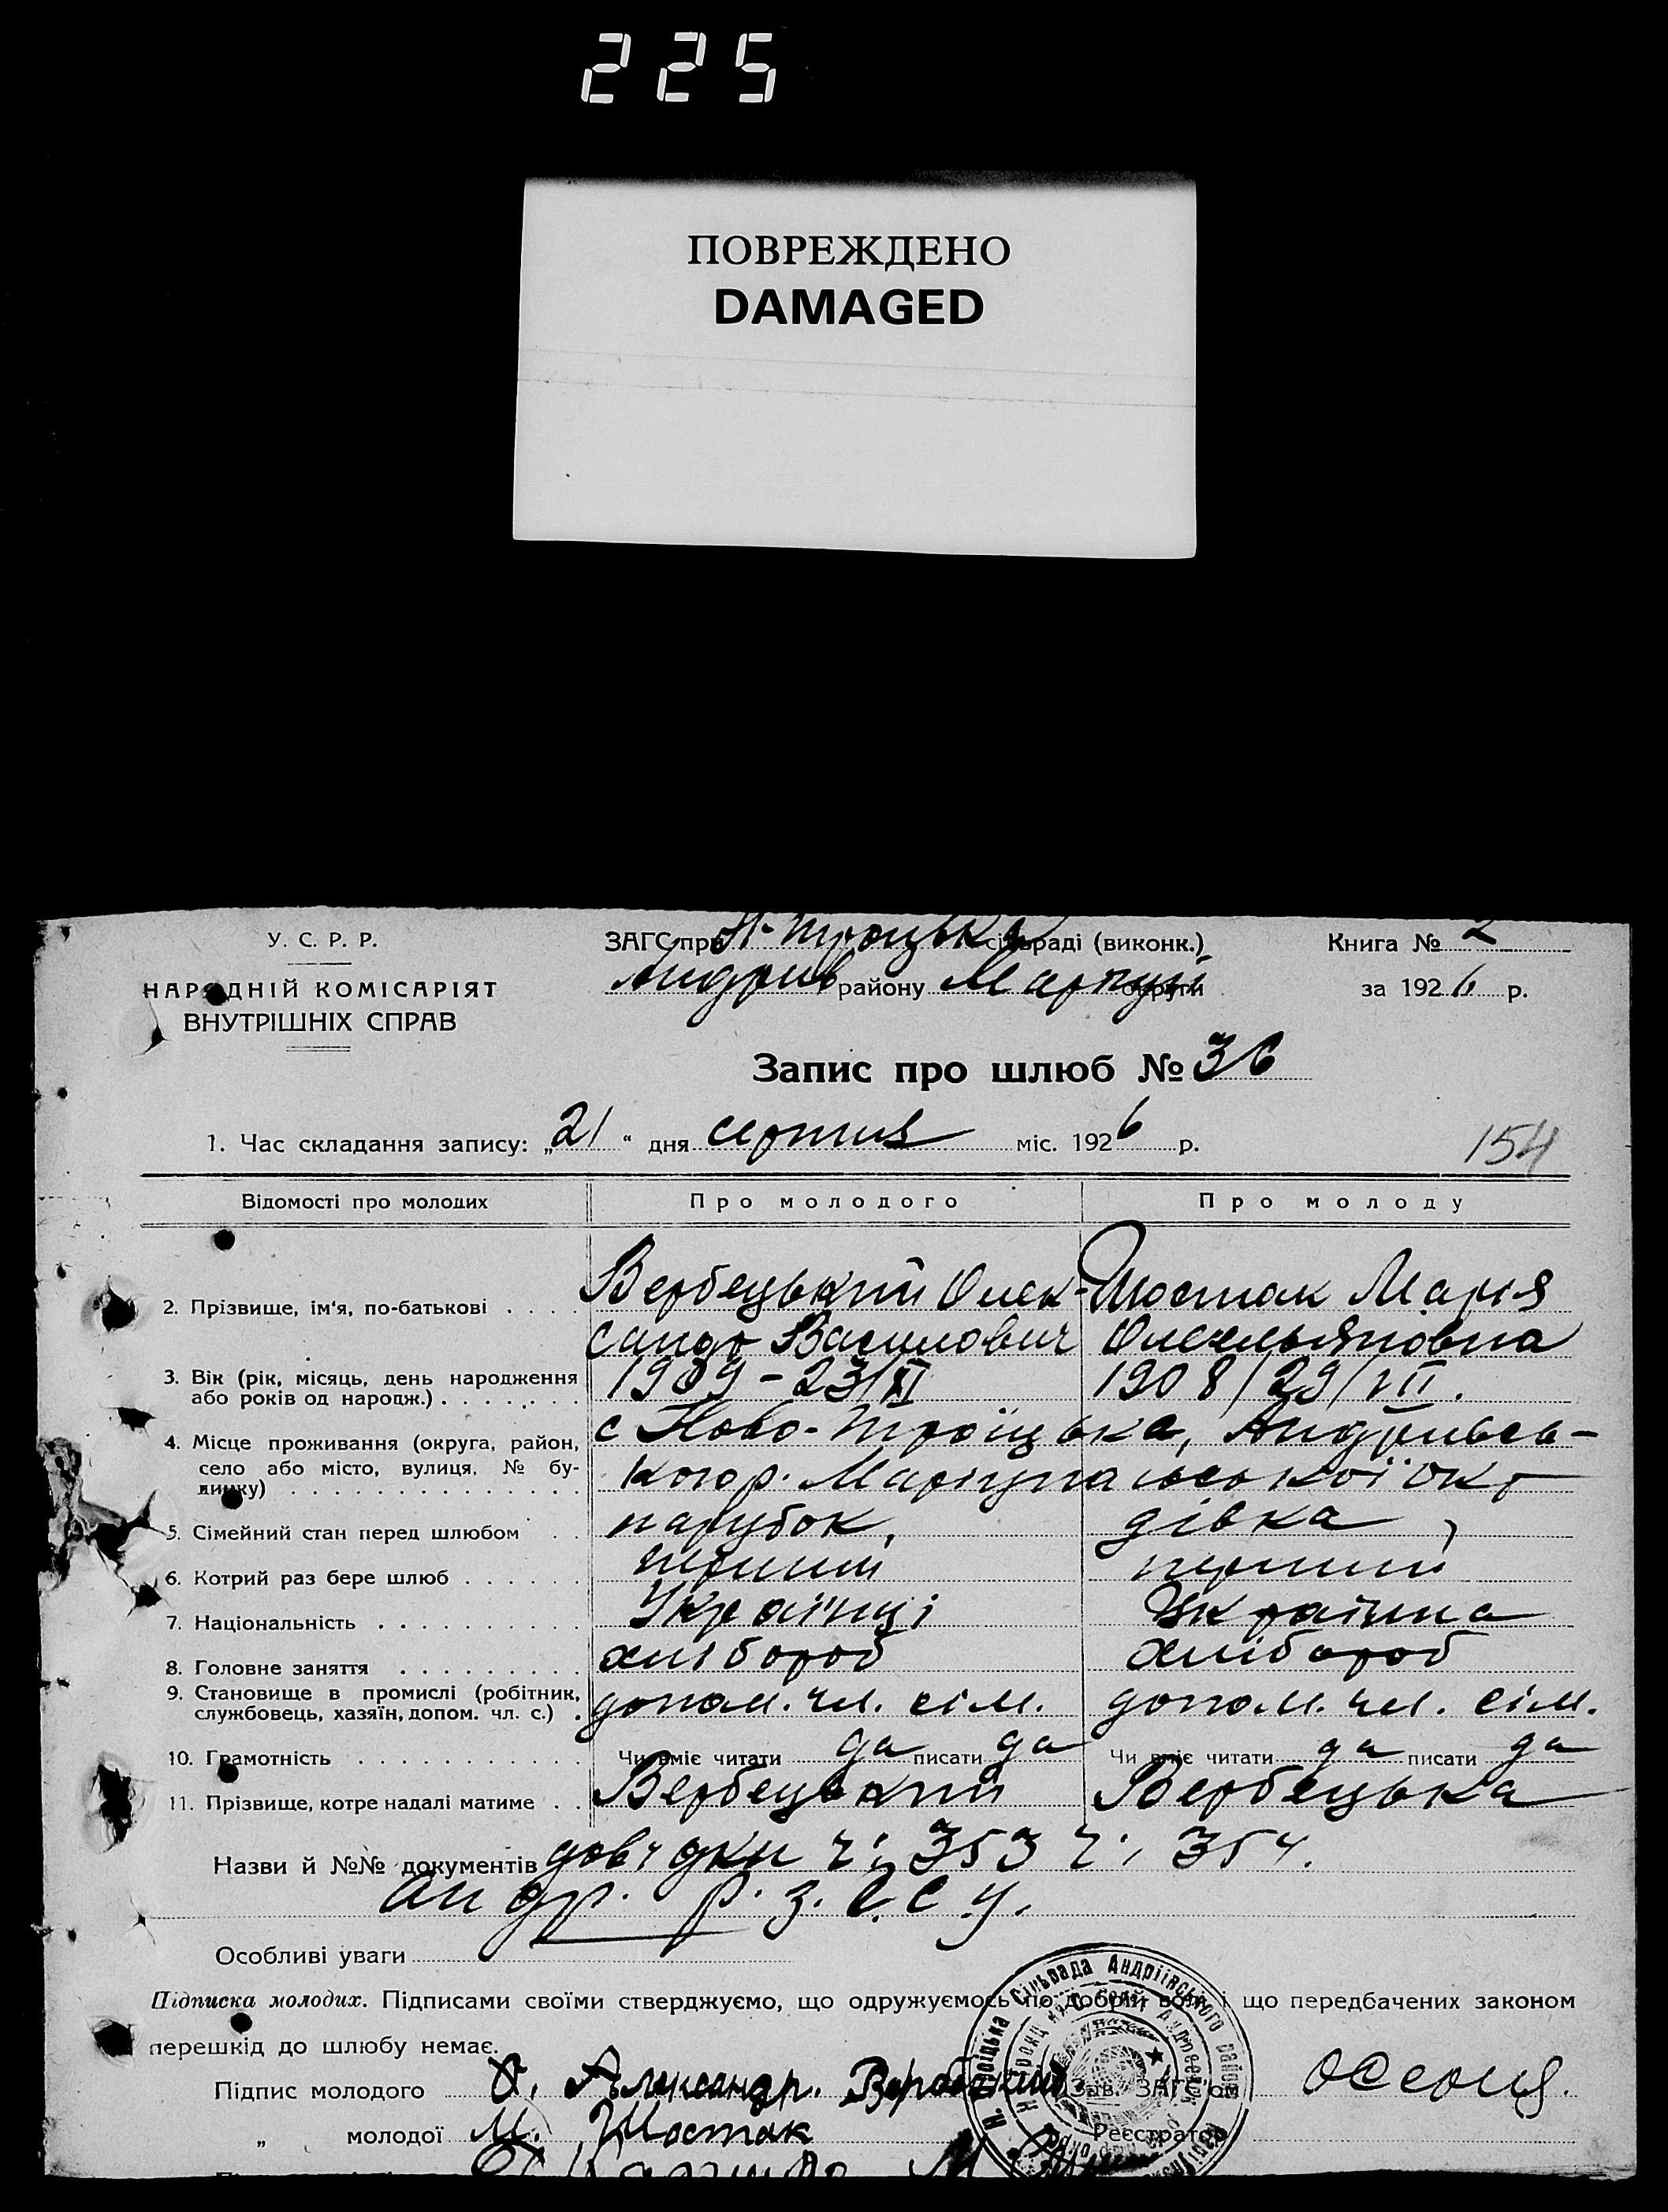 225
ПОВРЕЖДЕНО
DAMAGED
У. С. Р. Р.
НАРОДНІЙ КОМІСАРІЯТ
ВНУТРІШНІХ СПРАВ
ЗАГС при Н-Троцька сільраді (виконк.)
Андрив району Маріуп округи
Книга № 2
за 1926 р.
Запис про шлюб № 36
1. Час складання запису: „21“ дня серпня міс. 1926 р.
154
Відомості про молодих Про молодого Про молоду
2. Прізвище, ім'я, по-батькові . . . . Вербецький Олек- Шостак Марія
сандр Василович Омельяновна
3. Вік (рік, місяць, день народження 1909-23/XI 1908/29/VII.
або років од народж.) . . . . . . .
4. Місце проживання (округа, район, с Ново-Троїцька, Андривсь-
село або місто, вулиця, № бу- кого р. Маріупальської окр
динку) . . . . . . . . . . . . . .
5. Сімейний стан перед шлюбом . . парубок, дівка,
6. Котрий раз бере шлюб . . . . . . перший перший
7. Національність . . . . . . . . . . Українці Україина
8. Головне заняття . . . . . . . . . хлібороб хлібороб
9. Становище в промислі (робітник, допом. чл. сім. допом. чл. сім.
службовець, хазяїн, допом. чл. с.) .
10. Грамотність . . . . . . . . . . . Чи вміє читати да писати да Чи вміє читати да писати да
11. Прізвище, котре надалі матиме . . Вербецький Вербецька
Назви й №№ документів довідки ч: 353 ч: 354.
Андр. р. з.
Особливі уваги
Підписка молодих. Підписами своїми стверджуємо, що одружуємось по добрій волі і що передбачених законом
перешкід до шлюбу немає.
Підпис молодого Александр. Вербецкий Зав. ЗАГС'ом
„ молодої М. Шостак Реєстратор
Н. Троїцька Сільрада Андріївського району